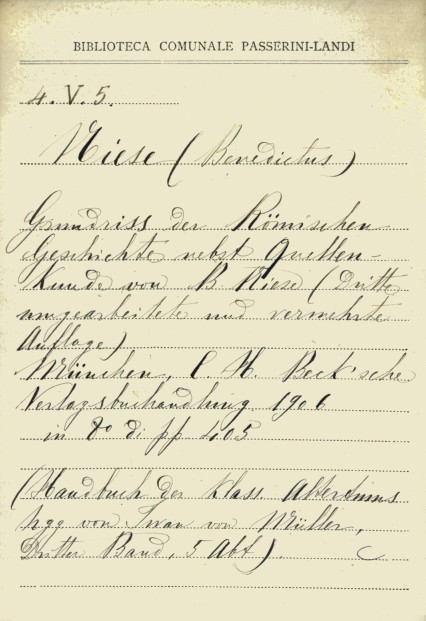 BIBLIOTECA COMUNALE PASSERINI-LANDI
4. V. 5.
Niese (Benedictus)
Grundriss der Römischen
Geschichte nebst Quellen-
Kunde von B Niese (Dritte
umgearbeitete und vermehrte
Auflage)
München, C. H. Beck'sche
Verlagsbuchandlung 1906
in 8o di pp 405
(Handbuch der Klass. Altertums
hgg von Iwan von Müller,
Dritter Band, 5 Abt). C